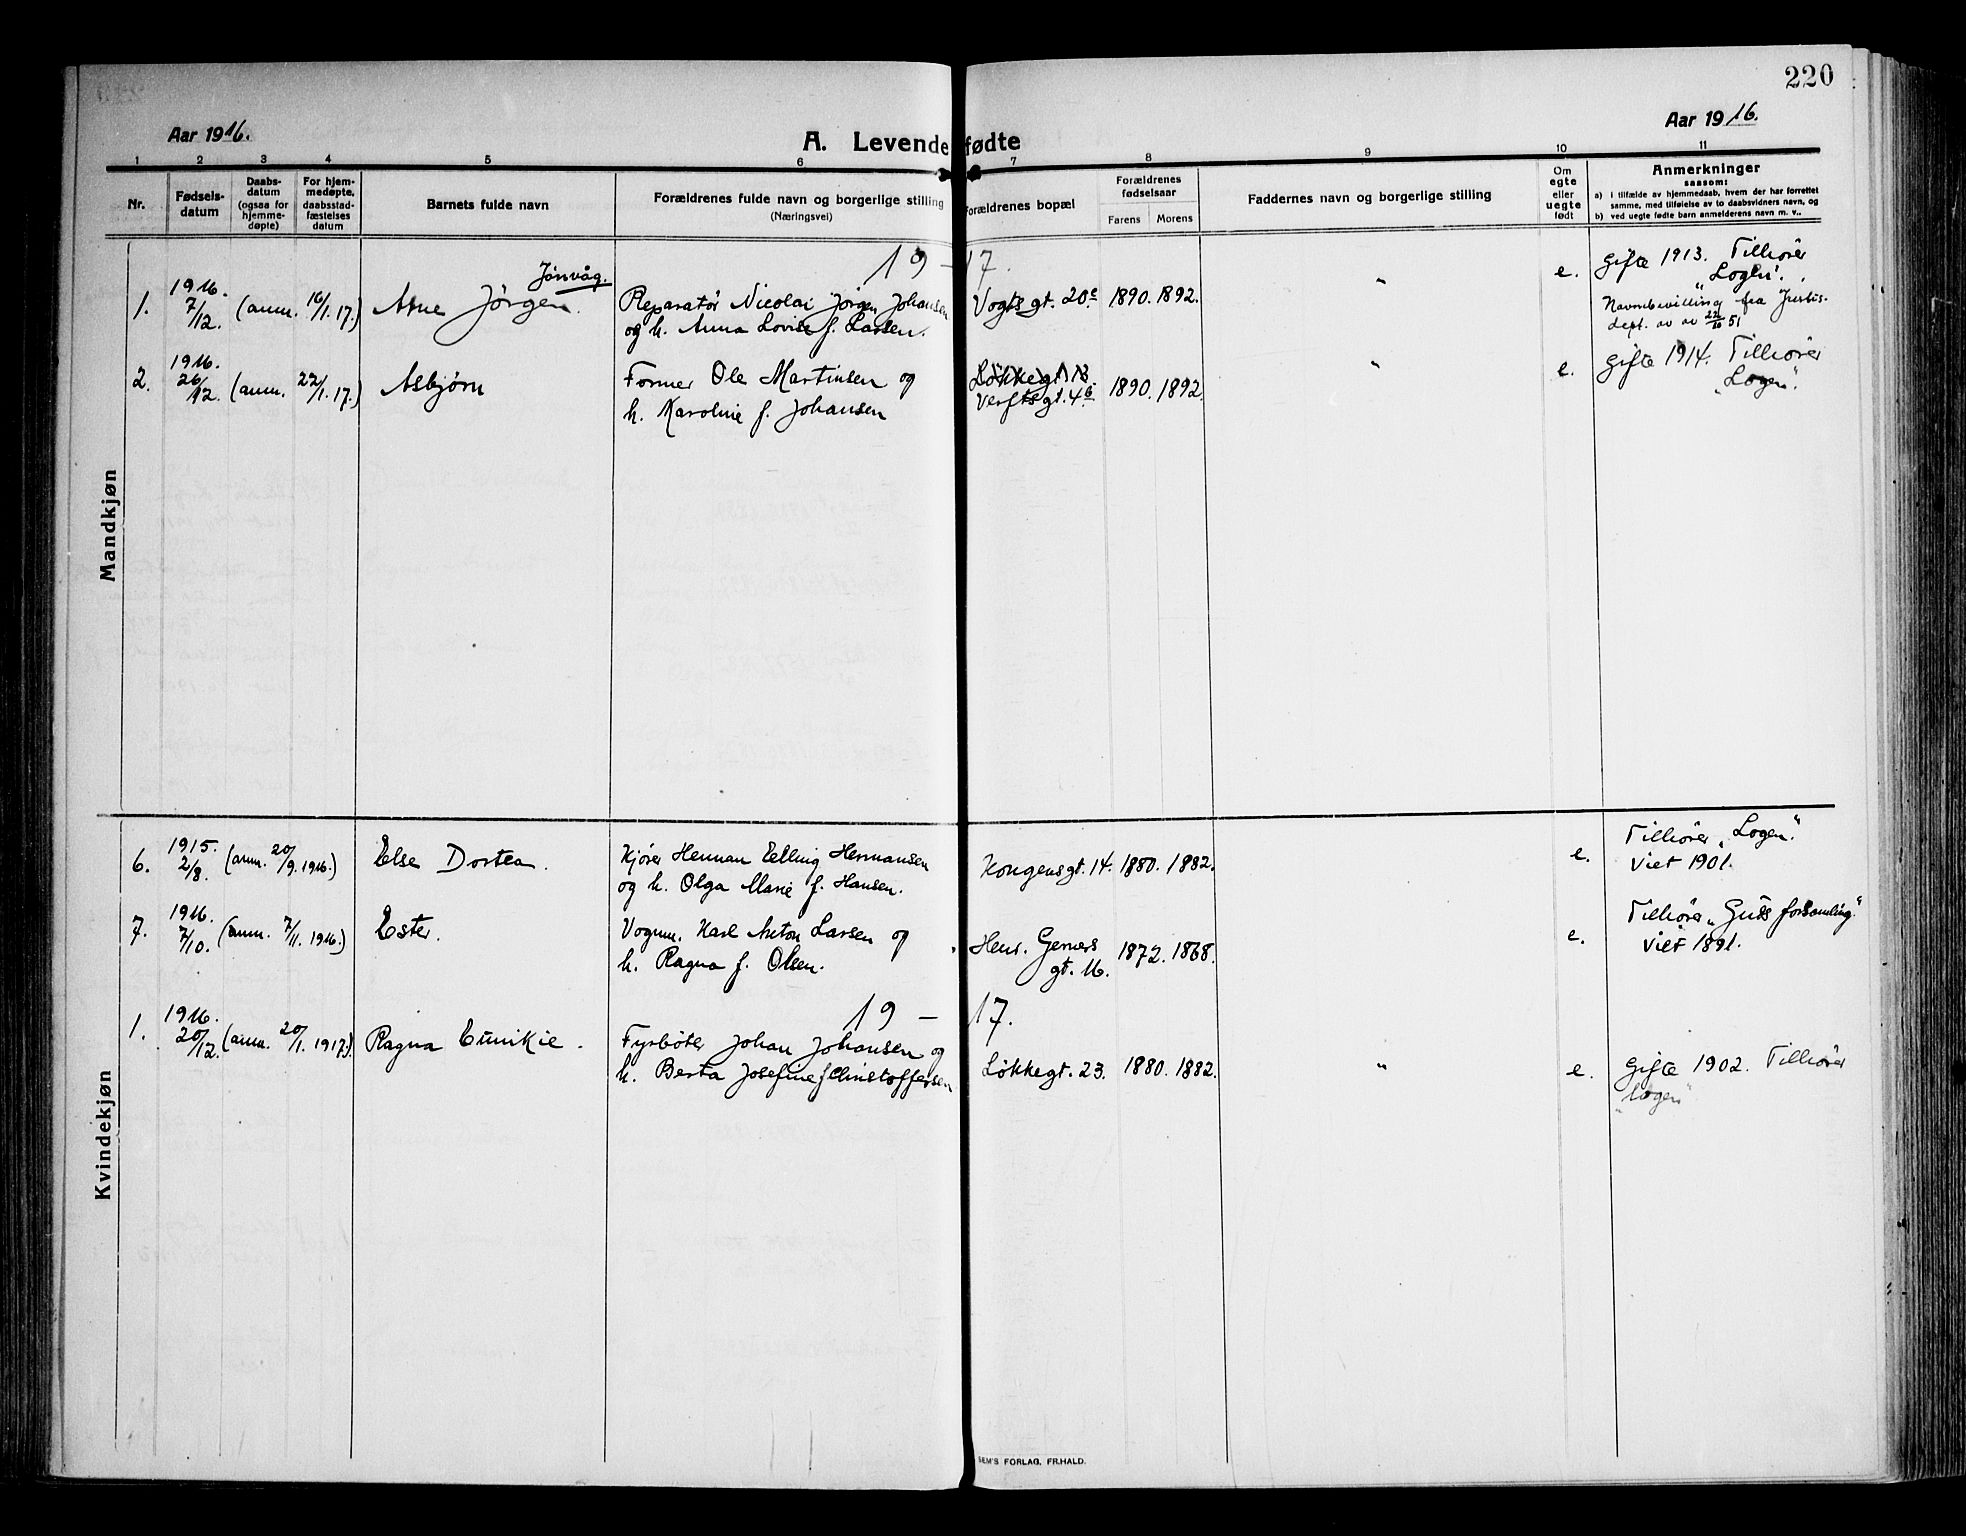 220
Aar 1916.
Aar 1916.
A. Levende fødte
1 2 3 4 5 6 7 8 9 10 11
Nr.
Fødsels-
datum
Daabs-
datum
(ogsaa for
hjemme-
døpte)
For hjem-
medøpte,
daabsstad-
fæstelses
datum
Barnets fulde navn
Forældrenes fulde navn og borgerlige stilling
(Næringsvei)
Forældrenes bopæl
Forældrenes
fødselsaar
Farens Morens
Faddernes navn og borgerlige stilling
Om
egte
eller
uegte
født
Anmerkninger
saasom:
a) i tilfælde av hjemmedaab, hvem der har forrettet
samme, med tilføielse av to daabsvidners navn, og
b) ved uegte fødte barn anmelderens navn m. v..
Mandkjøn
19 – 17.
1. 1916. 7/12. (anm. 16/1. 17.) Arne Jörgen. Jönvåg.
Reparatör Nicolai Jörgen Johansen
og h. Anna Lovise f. Larsen.
Vogts gt. 20c 1890. 1892. " e.
Gifte 1913. Tilhörer
"Logen".
Navnebevilling fra Justis-
dept. av 22/10 51
2. 1916. 26/12. (anm. 22/1. 17.) Asbjørn
Former Ole Martinsen og
h. Karoline f. Johansen
Løkkegt. 13.
Verftsgt. 4b 1890. 1892. " e.
Gifte 1914. Tilhörer
"Logen".
Kvindekjøn
6. 1915. 2/8. (anm. 20/9. 1916.) Else Dortea.
Kjører Herman Elling Hermansen
og h. Olga Marie f. Hansen.
Kongensgt. 14. 1880. 1882. e.
Tilhører "Logen".
Viet 1901.
7. 1916. 7/10. (anm. 7/11. 1916.) Ester.
Vognm. Karl Anton Larsen og
h. Ragna f. Olsen.
Henr. Gerners
gt. 16. 1872. 1868. e.
Tilhører "Guds forsamling."
Viet 1891.
19 – 17.
1. 1916. 20/12. (anm. 20/1. 1917.) Ragna Eunikie.
Fyrbøter Johan Johansen og
h. Berta Josefine f. Christoffersen
Løkkegt. 23. 1880. 1882. " e.
Gifte 1902. Tilhører
"Logen"
SEM'S FORLAG, FR.HALD.